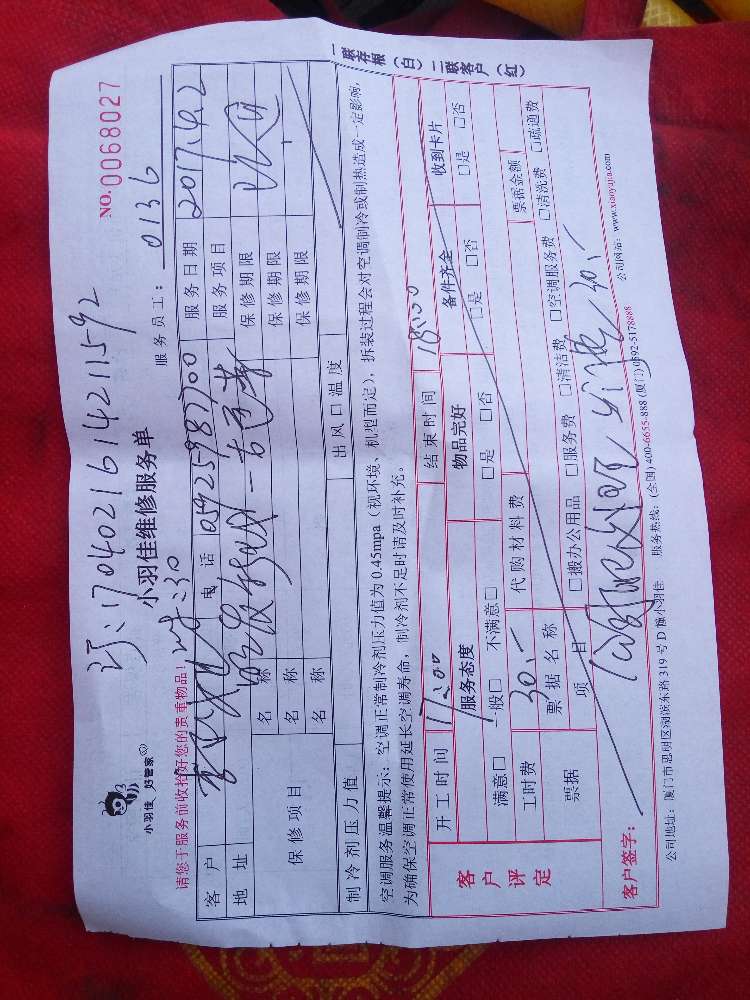 一联存根（白）二联客户（红）
NO.0068027
订：17040216142111592
小羽佳 好管家
小羽佳维修服务单
服务员工： 0136
请您于服务前收拾好您的贵重物品！
客户 电话 服务日期 2017.4.2
地址 服务项目
保修项目 名称 保修期限
名称 保修期限
名称 保修期限
制冷剂压力值 出风口温度
空调服务温馨提示：空调正常制冷剂压力值为 0.45mpa（视环境、机型而定），拆装过程会对空调制冷或制热造成一定影响，
为确保空调正常使用延长空调寿命，制冷剂不足时请及时补充。
客户评定 开工时间 17:00 结束时间 18:00
服务态度 物品完好 备件齐全 收到卡片
满意□ 一般□ 不满意□ □是 □否 □是 □否 □是 □否
工时费 30.- 代购材料费
票据 票据名称 票据金额
项目 □搬办公用品 □服务费 □清洁费 □空调服务费 □清洗费 □疏通费
客户签字： 30.-
公司地址：厦门市思明区湖滨东路 319 号 D 幢小羽佳 服务热线：(全国) 400-6655-888 (厦门) 0592-5178888 公司网站：www.xiaoyujia.com